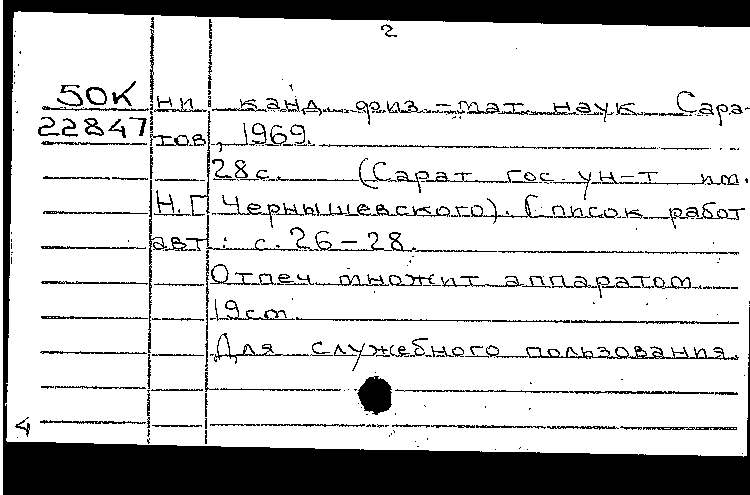 2
50К ни канд физ-мат. наук Сара-
22847 тов, 1969.
28с. (Сарат гос. ун-т им.
Н.Г Чернышевского). Список работ
авт: с. 26-28.
Отпеч множит аппаратом
19ст.
Для служебного пользования.
4